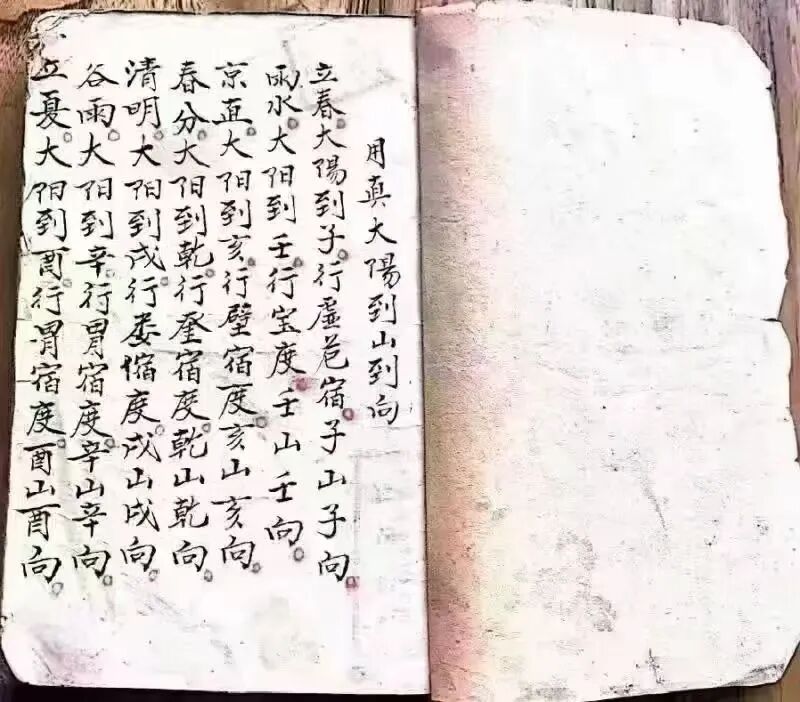 用真大陽到山到向
立春大陽到子。行虚苞宿。子山子向。
雨水。大阳到壬。行宝度。壬山壬向。
京直。大阳到亥。行壁宿度。亥山亥向。
春分。大阳到乾。行奎宿度。乾山乾向。
清明。大阳到戌。行娄宿度。戌山戌向。
谷雨。大阳到辛。行胃宿度。辛山辛向。
立夏。大阳到酉。行胃宿度。酉山酉向。